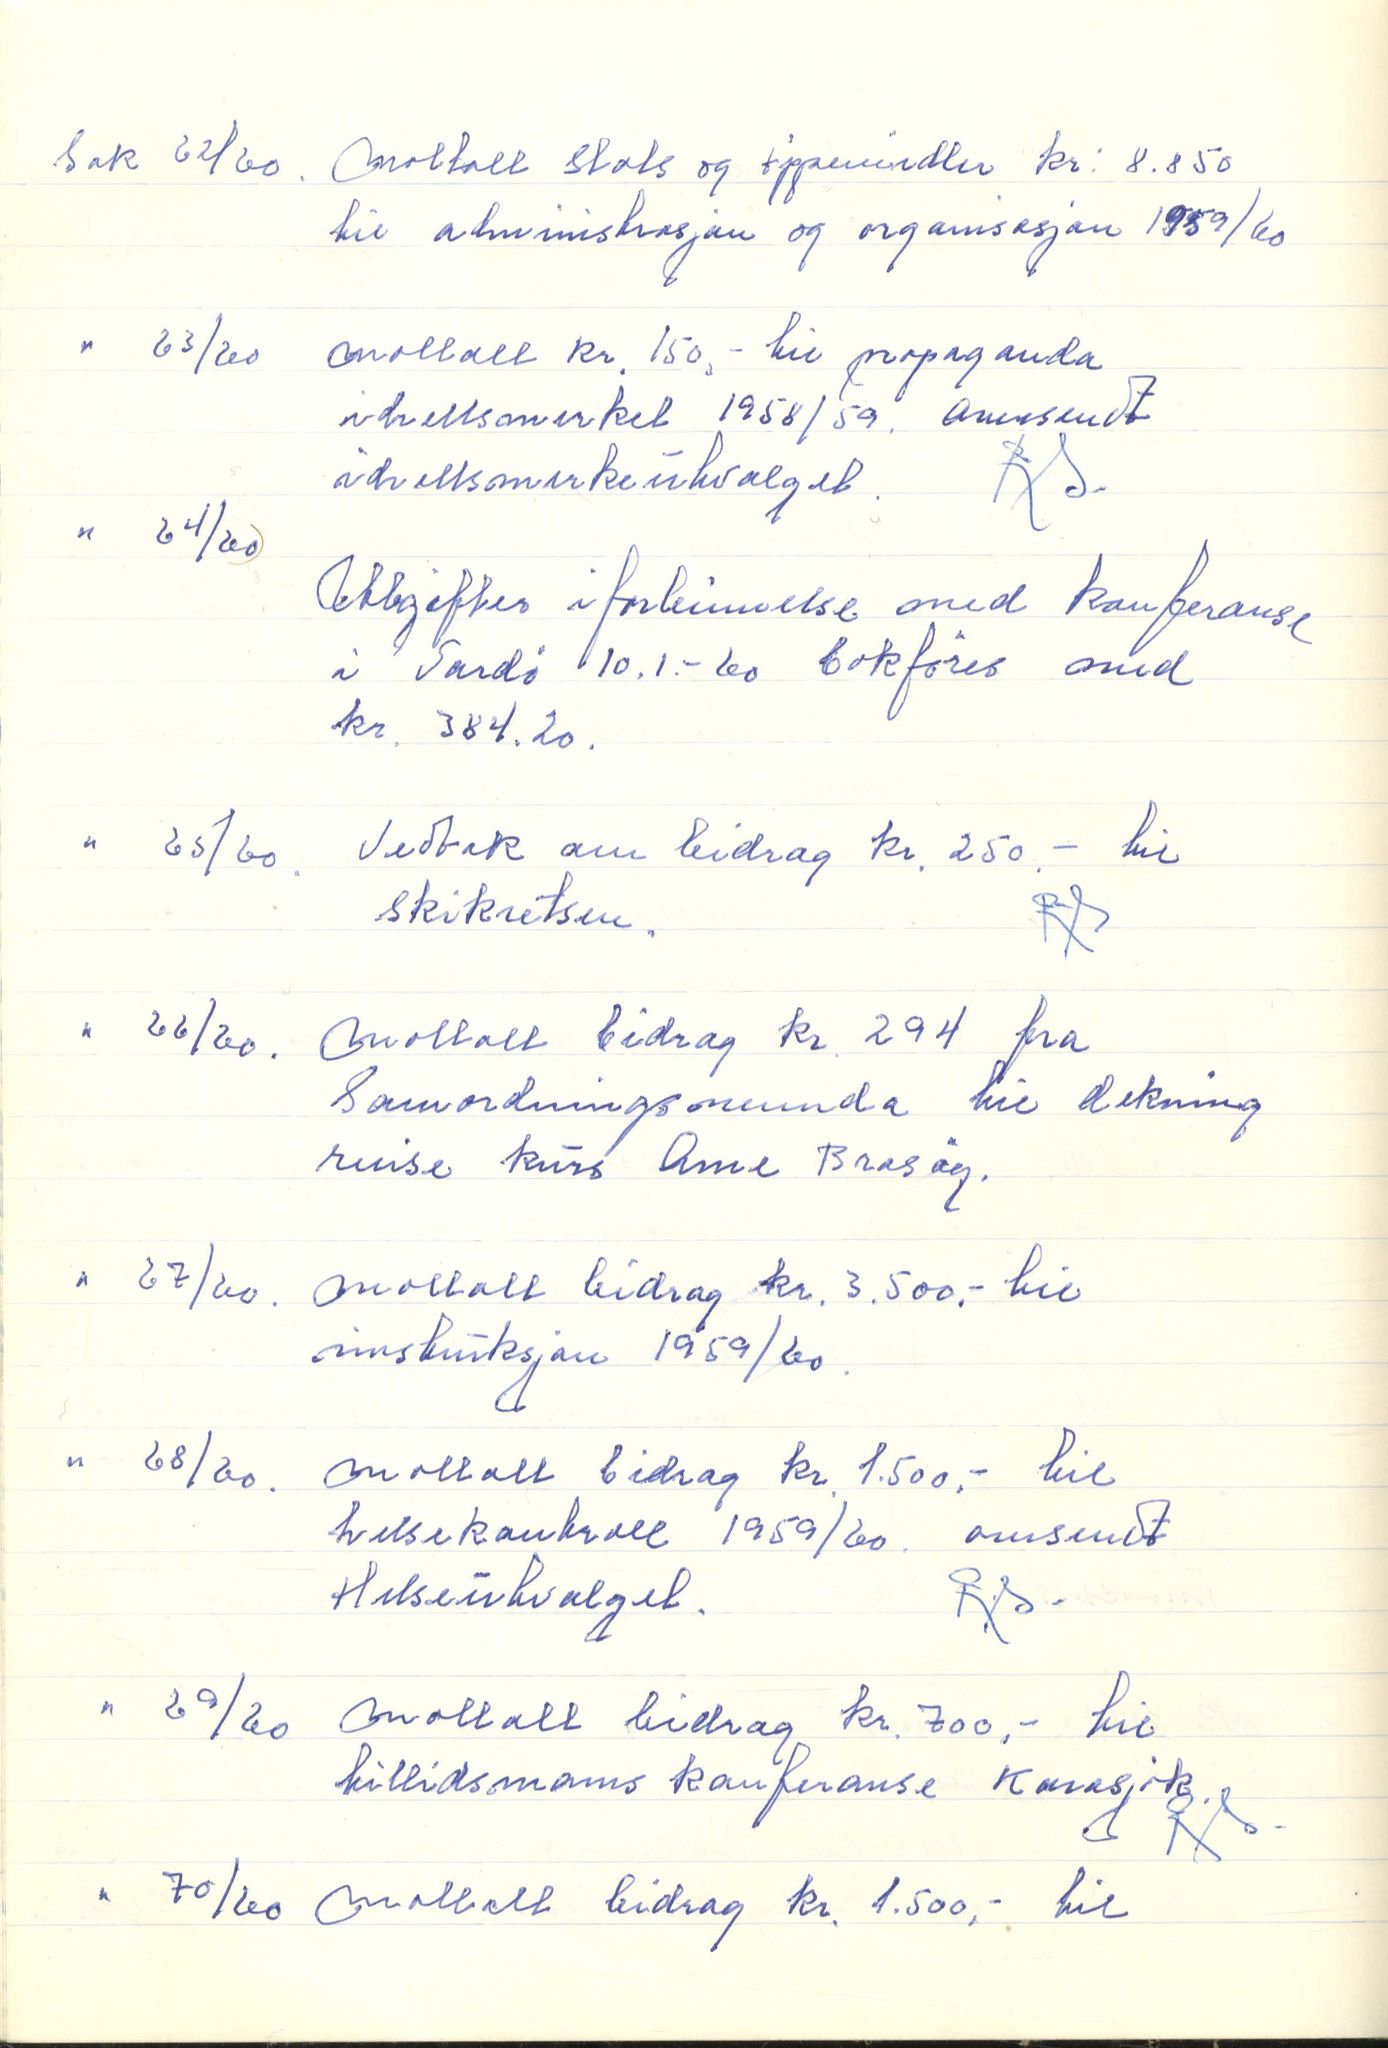 Sak 62/60. Mottatt Stats og tippemidler kr: 8.850
til administrasjon og organisasjon 1959/60
" 63/60 Mottatt kr. 150,- til propaganda
idrettsmerket 1958/59. Omsendt
idrettsmerkeutvalget. RS.
" 64/60
Utgifter i forbinnelse med konferanse
i Vardö 10.1.-60 bokföres med
kr. 384.20.
" 65/60. Vedtak om bidrag kr. 250.- til
skikretsen. RS
" 66/60. Mottatt bidrag kr. 294 fra
Samordningsnemnda til dekning
reise kurs Arne Brasög.
" 67/60. Mottatt bidrag kr. 3.500,- til
instruksjon 1959/60.
" 68/60. Mottatt bidrag kr. 1.500,- til
helsekontroll 1959/60. omsendt
Helseutvalget. RS.
" 69/60 Mottatt bidrag kr. 700,- til
tillidsmanns konferanse Karasjok.
RS.
" 70/60 Mottatt bidrag kr. 1.500,- til